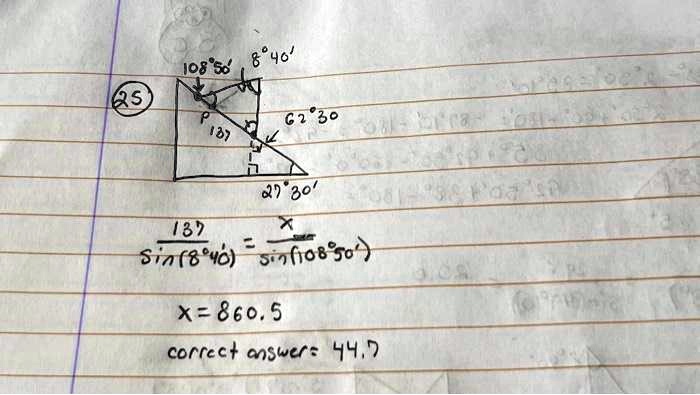 108°50'
8°40'
25
P
137
x
62°30
27°30'
137 / sin(8°40') = x / sin(108°50')
x = 860.5
correct answer = 44.7